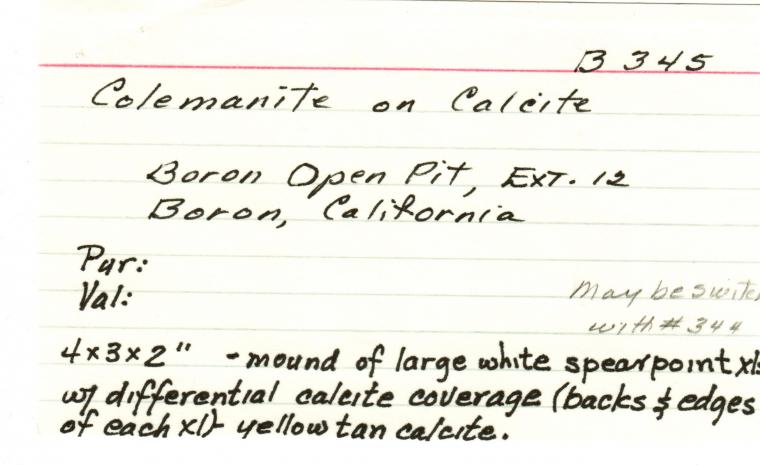 B 345
Colemanite on Calcite
Boron Open Pit, Ext. 12
Boron, California
Pur:
Val:
May be switch
with # 344
4x3x2" - mound of large white spearpoint xls
w/ differential calcite coverage (backs & edges
of each xl)- yellow tan calcite.